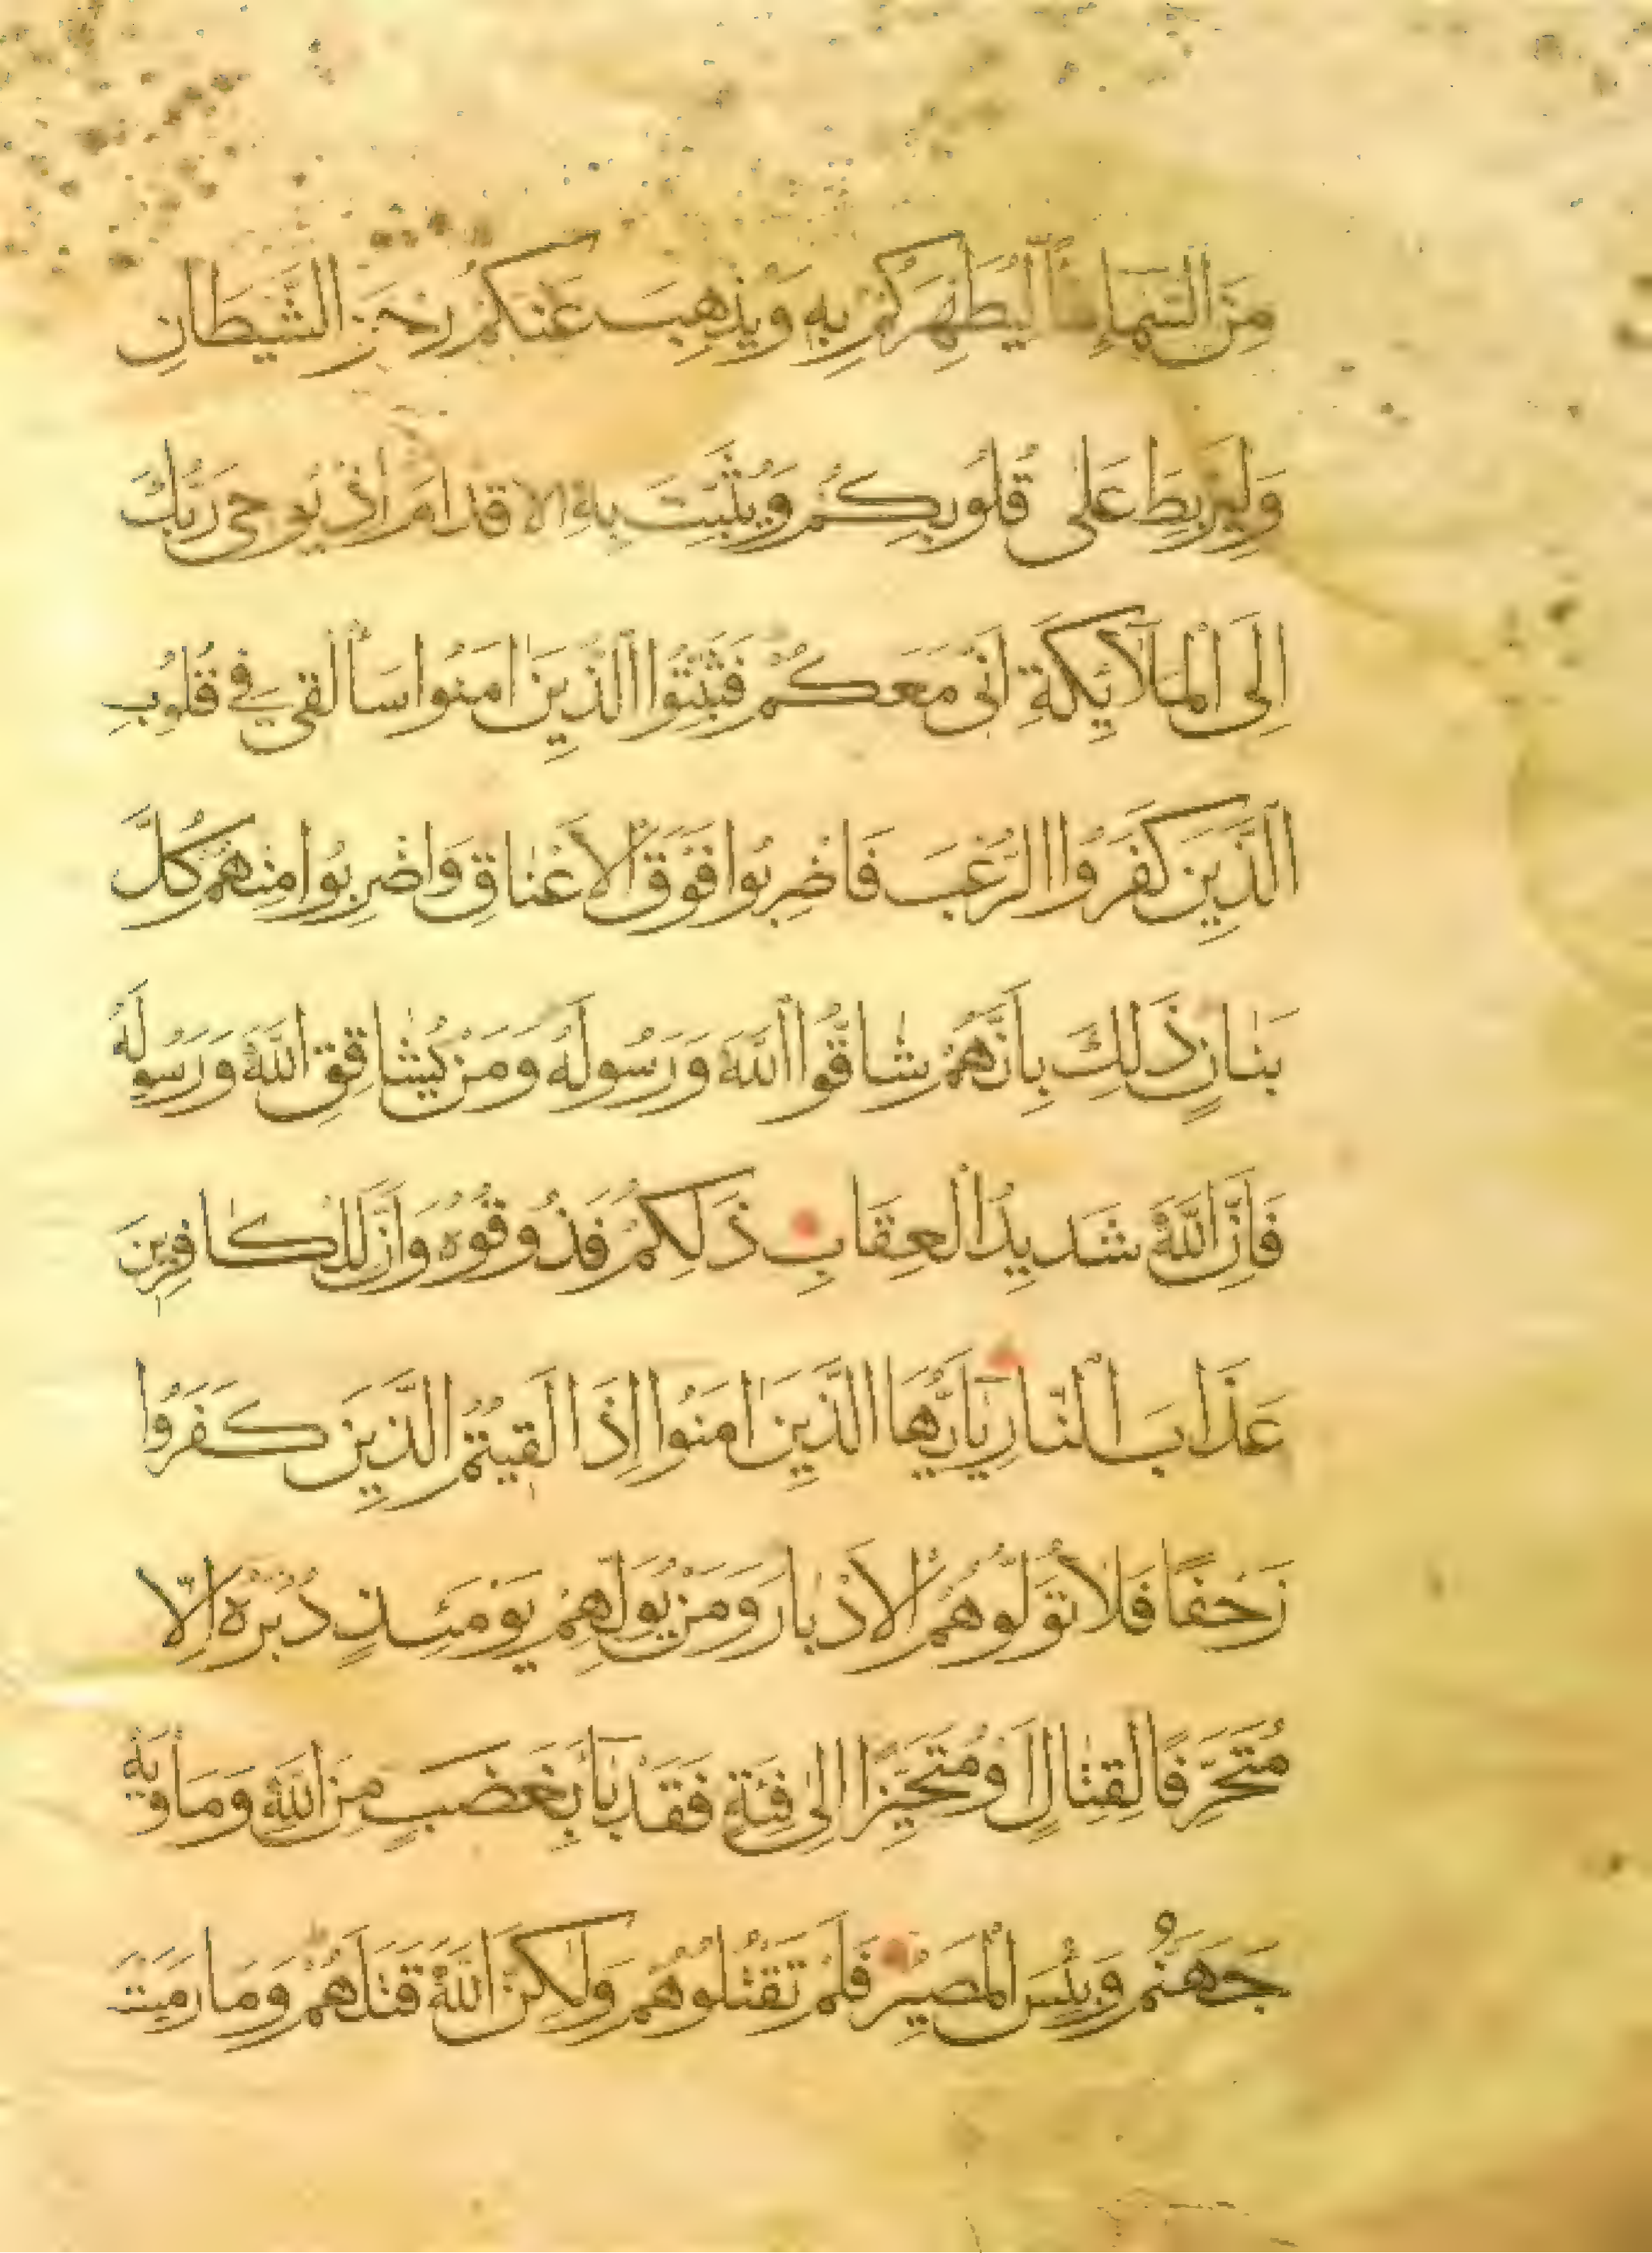 مِنَ السَّمَاءِ مَاءً لِيُطَهِّرَكُمْ بِهِ وَيُذْهِبَ عَنْكُمْ رِجْزَ الشَّيْطَانِ
وَلِيَرْبِطَ عَلَى قُلُوبِكُمْ وَيُثَبِّتَ بِهِ الْاَقْدَامَ اِذْ يُوحِى رَبُّكَ
اِلَى الْمَلَائِكَةِ اَنِّى مَعَكُمْ فَثَبِّتُوا الَّذِينَ اٰمَنُوا سَاُلْقِى فِى قُلُوبِ
الَّذِينَ كَفَرُوا الرُّعْبَ فَاضْرِبُوا فَوْقَ الْاَعْنَاقِ وَاضْرِبُوا مِنْهُمْ كُلَّ
بَنَانٍ ذَلِكَ بِاَنَّهُمْ شَاقُّوا اللَّهَ وَرَسُولَهُ وَمَنْ يُشَاقِقِ اللَّهَ وَرَسُولَهُ
فَاِنَّ اللَّهَ شَدِيدُ الْعِقَابِ ذَلِكُمْ فَذُوقُوهُ وَاَنَّ لِلْكَافِرِينَ
عَذَابَ النَّارِ يَاَيُّهَا الَّذِينَ اٰمَنُوا اِذَا لَقِيتُمُ الَّذِينَ كَفَرُوا
زَحْفًا فَلَا تُوَلُّوهُمُ الْاَدْبَارَ وَمَنْ يُوَلِّهِمْ يَوْمَئِذٍ دُبُرَهُ اِلَّا
مُتَحَرِّفًا لِقِتَالٍ اَوْ مُتَحَيِّزًا اِلَى فِئَةٍ فَقَدْ بَاءَ بِغَضَبٍ مِنَ اللَّهِ وَمَاْوٰيهُ
جَهَنَّمُ وَبِئْسَ الْمَصِيرُ فَلَمْ تَقْتُلُوهُمْ وَلٰكِنَّ اللَّهَ قَتَلَهُمْ وَمَا رَمَيْتَ